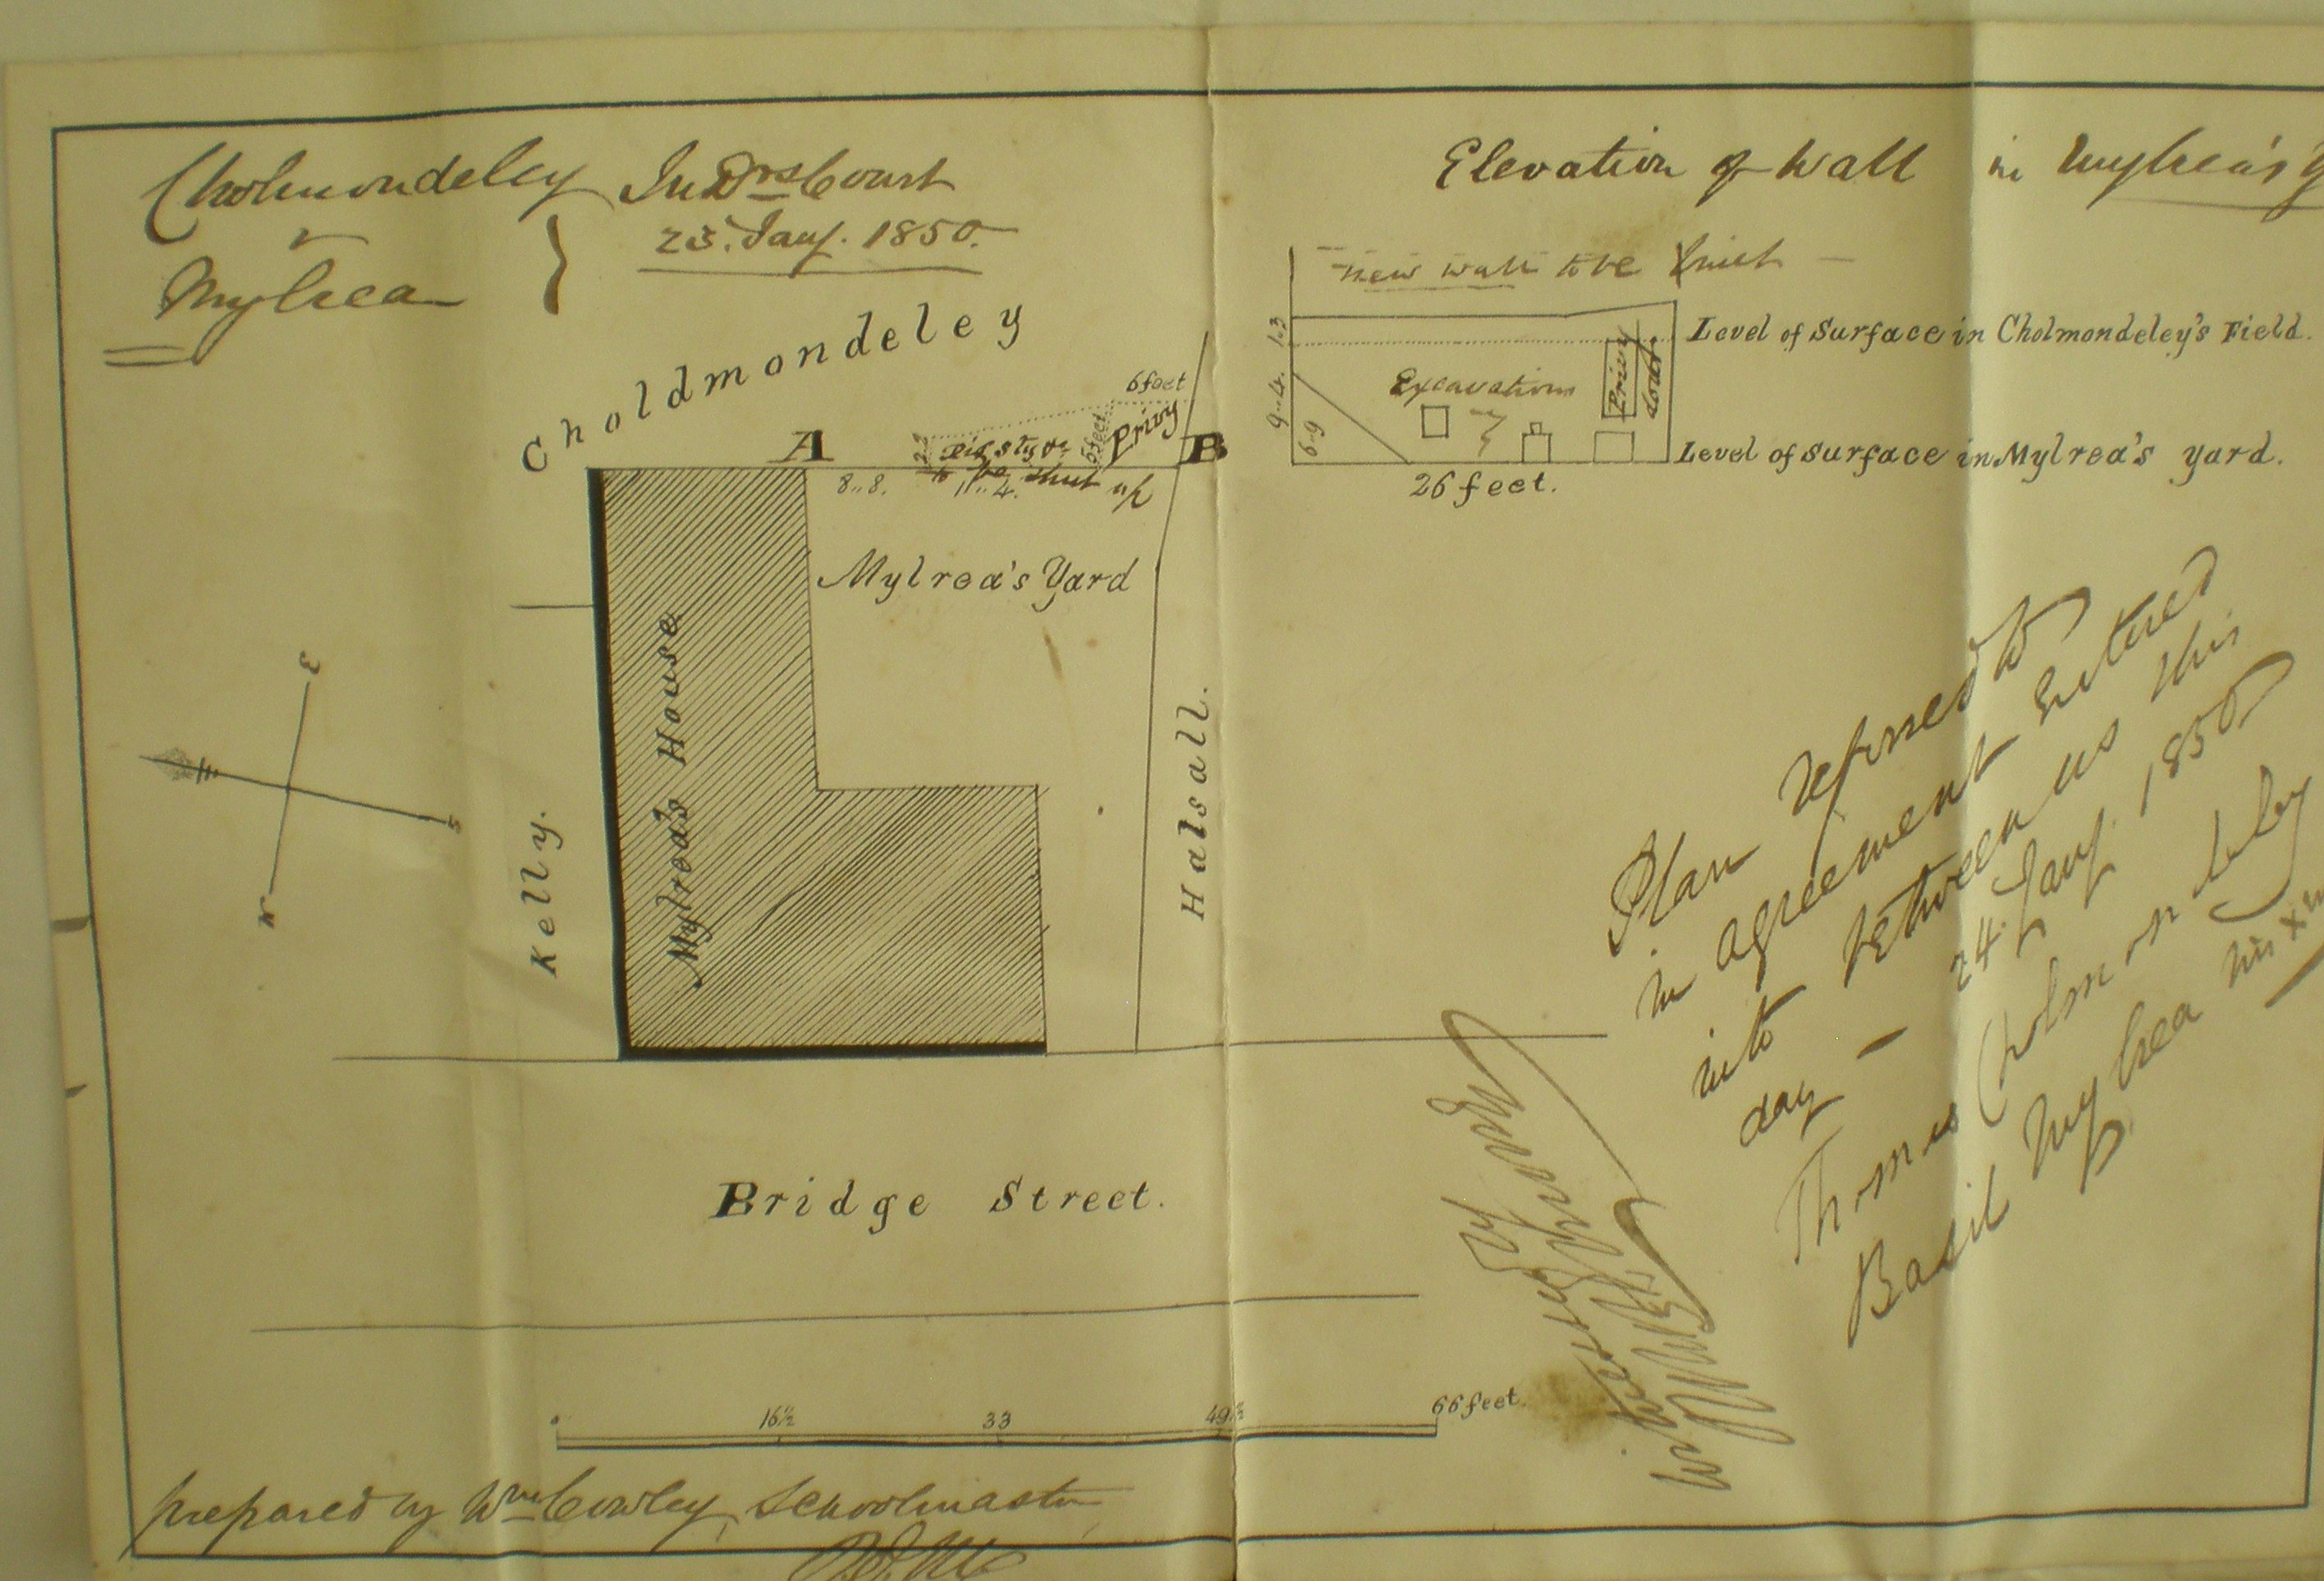 Cholmondeley
v
Mylrea
In Drs Court
25. Jany. 1850.
Choldmondeley
A
B
6 feet
Privy
5 feet
2..3
Pig Stye
to be shut up
8..8.
11..4.
Mylrea's Yard
Mylrea's House
Kelly.
Halsall.
E
N
S
W
Bridge Street.
0 16½ 33 49½ 66 feet.
prepared by Wm Cowley, Schoolmaster
Elevation of Wall in Mylrea's
New wall to be built
1..3
9..4.
6..9
Level of Surface in Cholmondeley's Field.
Excavations
Privy
door.
Level of Surface in Mylrea's yard.
26 feet.
Plan referred to
in agreement entered
into between us this
day — 24. Jany. 1850
Thomas Cholmondeley
Basil Mylrea his x
Witnesses